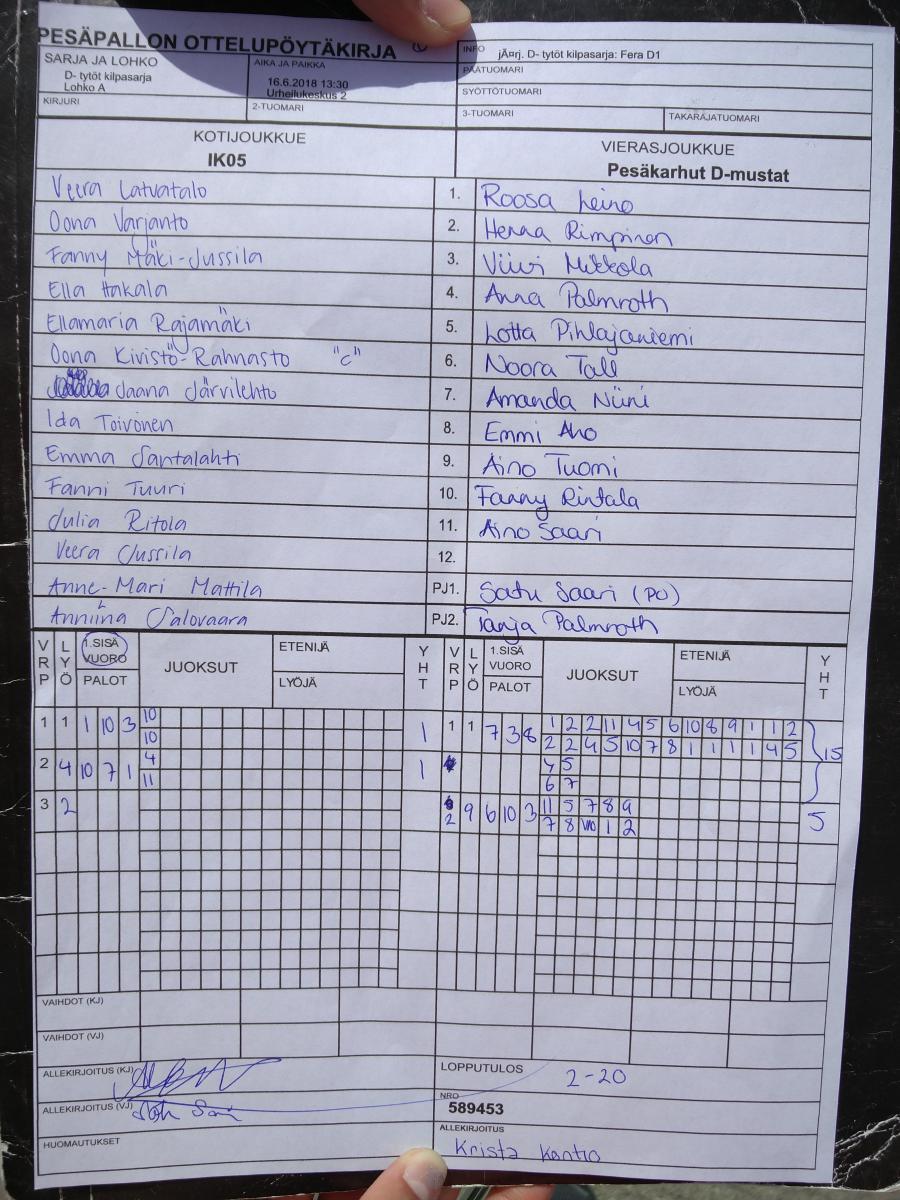 PESÄPALLON OTTELUPÖYTÄKIRJA
SARJA JA LOHKO
D- tytöt kilpasarja
Lohko A
AIKA JA PAIKKA
16.6.2018 13:30
Urheilukeskus 2
INFO jÄ¤rj. D- tytöt kilpasarja: Fera D1
PÄÄTUOMARI
SYÖTTÖTUOMARI
KIRJURI 2-TUOMARI 3-TUOMARI TAKARAJATUOMARI
KOTIJOUKKUE VIERASJOUKKUE
IK05 Pesäkarhut D-mustat
Veera Latvatalo 1. Roosa Leino
Oona Varjanto 2. Henna Rimpinen
Fanny Mäki-Jussila 3. Viivi Mikkola
Ella Hakala 4. Anna Palmroth
Ellamaria Rajamäki 5. Lotta Pihlajaniemi
Oona Kivistö-Rahnasto "c" 6. Noora Tall
Jaana Järvilehto 7. Amanda Niini
Ida Toivonen 8. Emmi Aho
Emma Santalahti 9. Aino Tuomi
Fanni Tuuri 10. Fanny Rintala
Julia Ritola 11. Aino Saari
Veera Jussila 12.
Anne-Mari Mattila PJ1. Satu Saari (PO)
Anniina Salovaara PJ2. Tanja Palmroth
VRP LYÖ 1.SISÄ VUORO PALOT JUOKSUT ETENIJÄ LYÖJÄ YHT VRP LYÖ 1.SISÄ VUORO PALOT JUOKSUT ETENIJÄ LYÖJÄ YHT
1 1 1 10 3 10 1 1 1 7 3 8 1 2 2 11 4 5 6 10 8 9 1 1 2
10 2 2 4 5 10 7 8 1 1 1 1 4 5 15
2 4 10 7 1 4 1 4 5
11 6 7
3 2 2 9 6 10 3 11 5 7 8 9 5
7 8 1 2
VAIHDOT (KJ)
VAIHDOT (VJ)
ALLEKIRJOITUS (KJ)
LOPPUTULOS 2-20
ALLEKIRJOITUS (VJ)
NRO
589453
HUOMAUTUKSET
ALLEKIRJOITUS
Krista Kantio